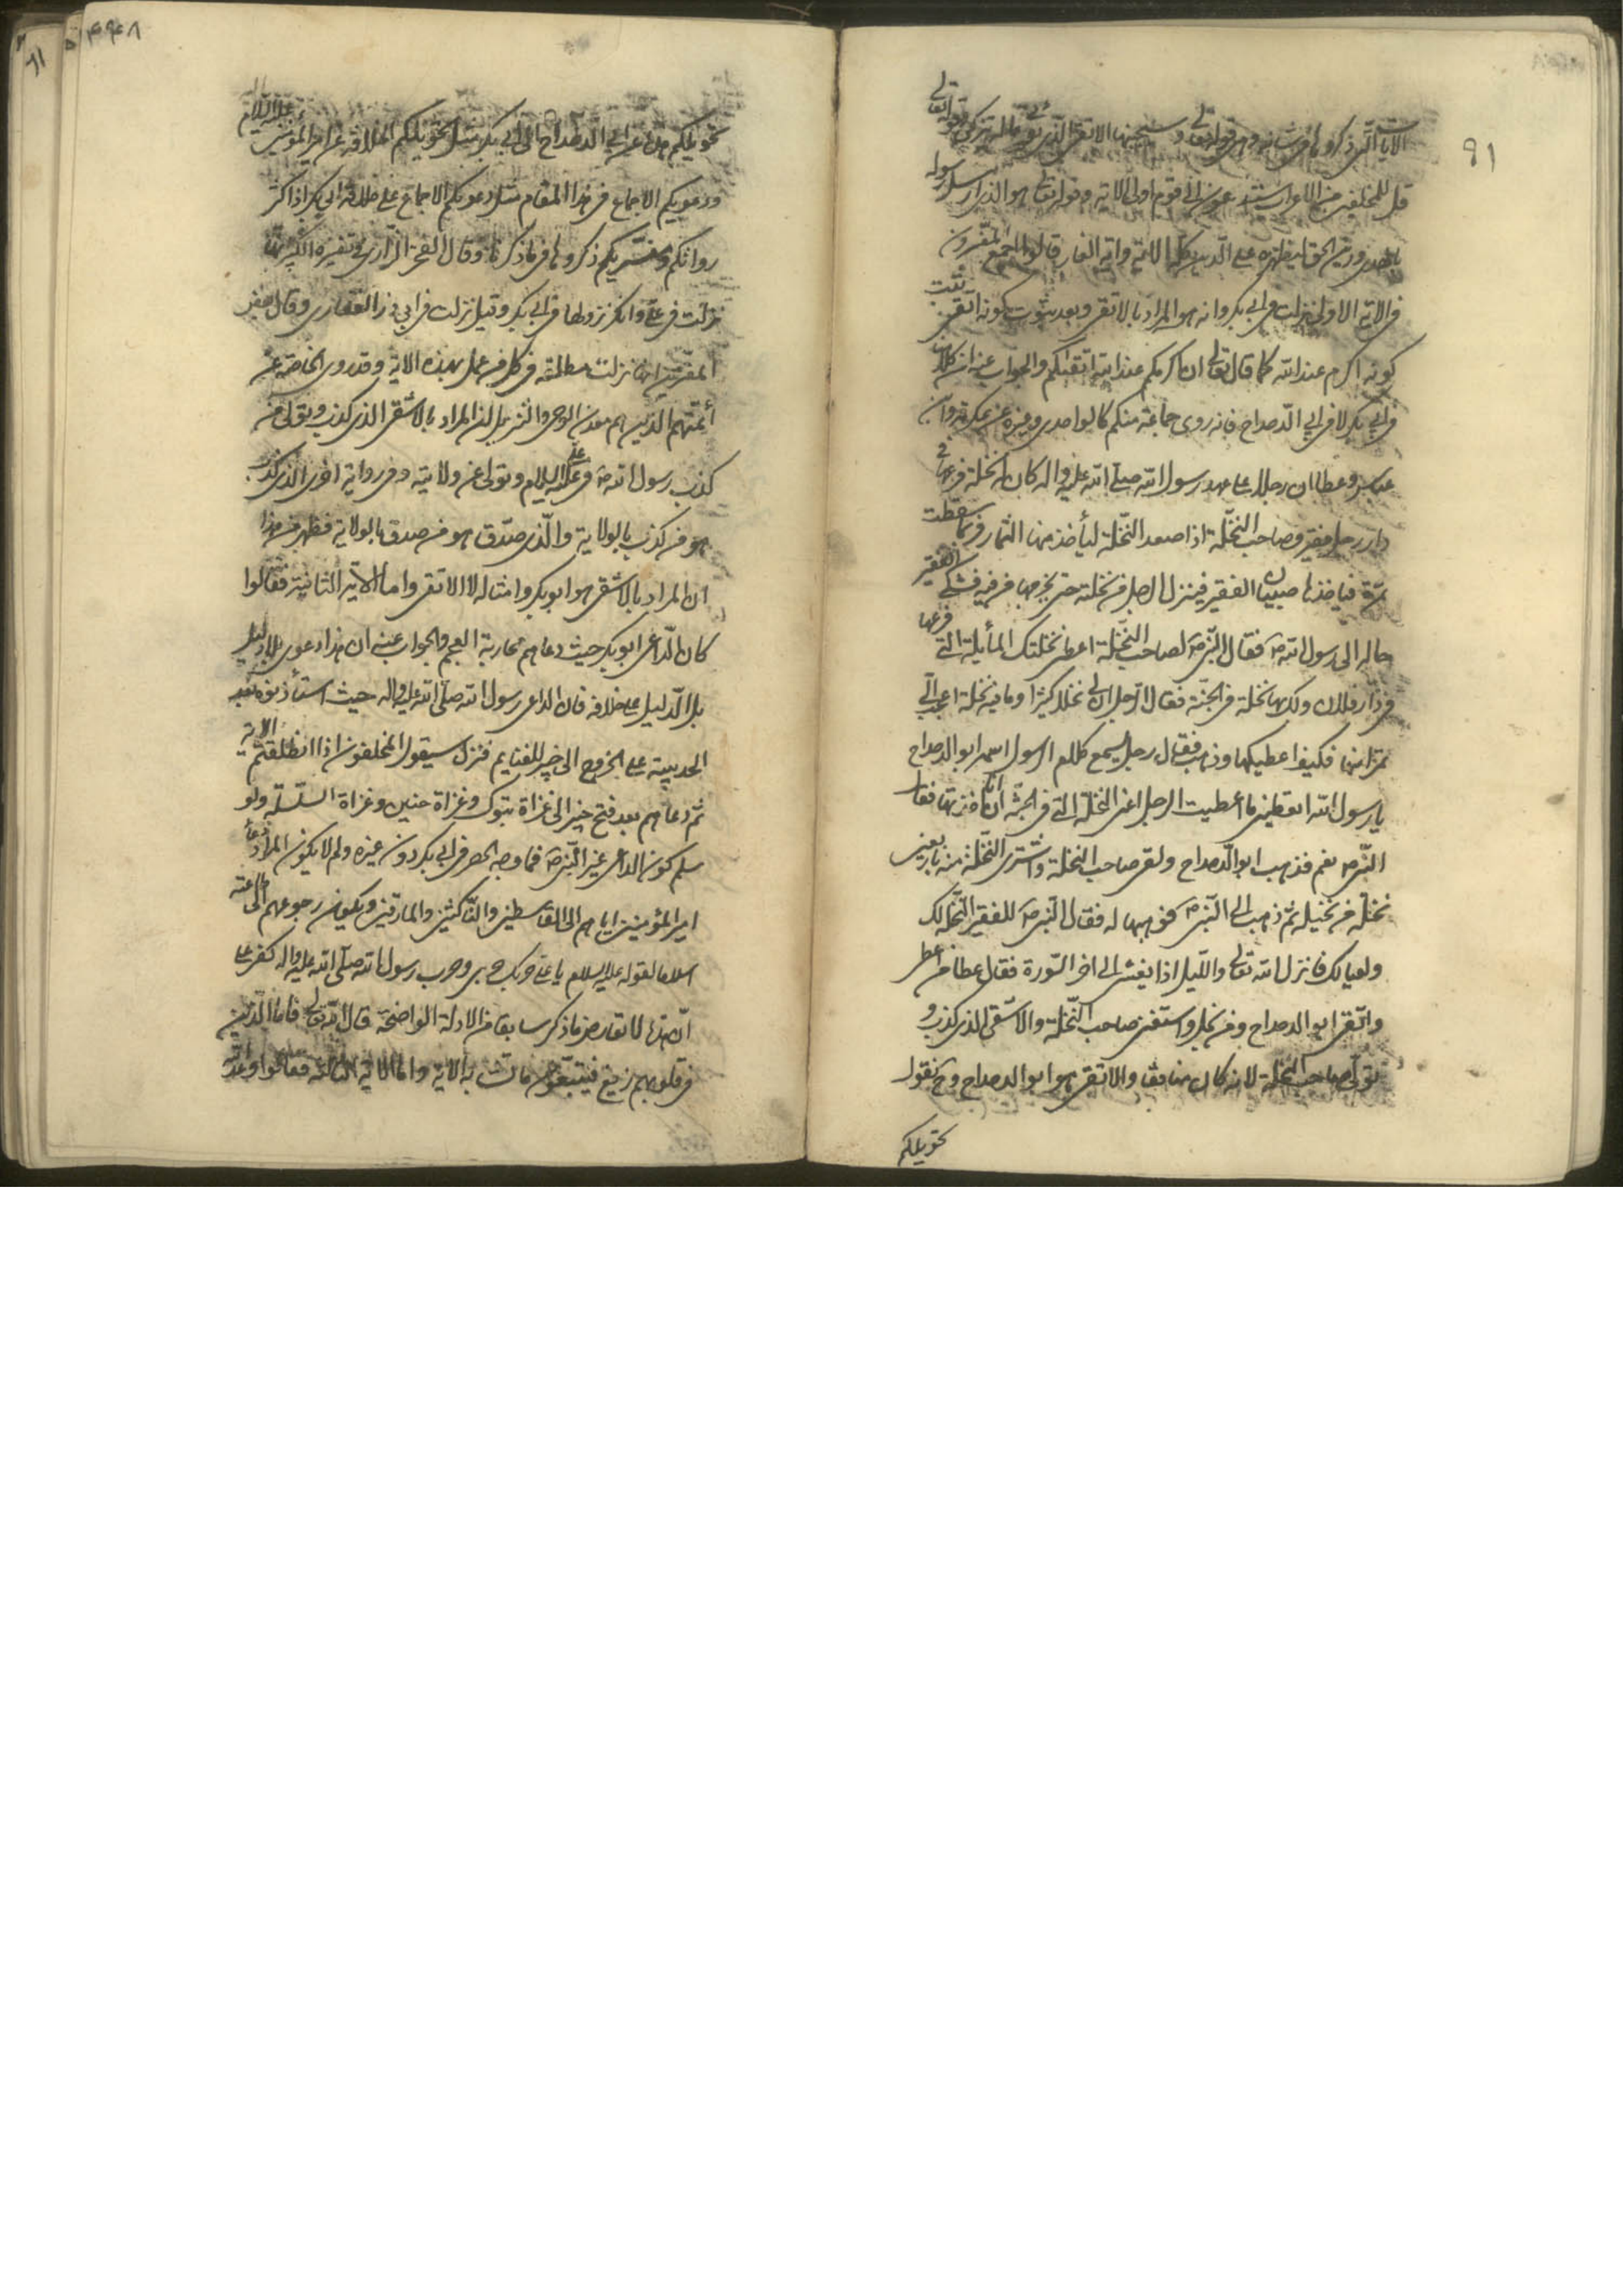 ٩١
الايات التى ذكروها فى شانه وهى قوله تعالى وسيجنبها الاتقى الذى يؤتى ماله يتزكى وقوله تعالى
قل للمخلفين من الاعراب ستدعون الى قوم اولى الاية وقوله تعالى هو الذى ارسل رسوله
بالهدى ودين الحق ليظهره على الدين كله الاية واية الغار قالوا اجمع المفسرون
فى الاية الاولى نزلت فى ابى بكر وانه هو المراد بالاتقى وبعد ثبوت كونه اتقى ثبت
كونه اكرم عند الله كما قال تعالى ان اكرمكم عند الله اتقيكم والجواب عنه ان كلا
فى ابى بكر لا فى ابى الدحداح فانه روى جماعة منكم كالواحدى وغيره عن عكرمة و ابن
عباس وعطا ان رجلا على عهد رسول الله صلى الله عليه واله كان له نخلة فرعها فى
دار رجل فقير وصاحب النخلة اذا صعد النخلة ليأخذ منها الثمار فربما سقطت
تمرة فياخذها صبيان الفقير فينزل الرجل من نخلته حتى يخرجها من فيه فشكى الفقير
حاله الى رسول الله ص فقال النبى ص لصاحب النخلة اعطنى نخلتك المايلة التى فرعها
فى دار فلان ولك بها نخلة فى الجنة فقال الرجل ان لى نخلا كثيرا وما فيه نخلة اعجب الى
تمرا منها فكيف اعطيكها وذهب فقال رجل يسمع كلام الرسول اسمه ابو الدحداح
يا رسول الله اتعطينى ما اعطيت الرجل اعنى النخلة التى فى الجنة ان انا اخذتها فقال
النبى ص نعم فذهب ابو الدحداح ولقى صاحب النخلة واشترى النخلة منه باربعين
نخلة من نخيله ثم ذهب الى النبى ص فوهبها له فقال النبى ص للفقير النخلة لك
ولعيالك فانزل الله تعالى والليل اذا يغشى الى اخر السورة فقال عطا من اعطى
واتقى ابو الدحداح ومن بخل واستغنى صاحب النخلة والاشقى الذى كذب و
تولى صاحب النخلة لانه كان منافقا والاتقى هو ابو الدحداح وح نقول
تحويلكم
٤٩٤٨
تحويلكم هذا عن ابى الدحداح الى ابى بكر مثل تحويلكم الخلافة عن امير المؤمنين عليه السلام
ودعويكم الاجماع فى هذا المقام مثل دعويكم الاجماع على خلافة ابى بكر اذ اكثر
رواتكم ومفسريكم ذكروها فيما ذكرنا وقال الفخر الرازى فى تفسيره الكبير انها
نزلت فى على وانكر نزولها فى ابى بكر وقيل نزلت فى ابى ذر الغفارى وقال بعض
المفسرين انها نزلت مطلقة فى كل من عمل بهذه الاية وقد روى الخاصة عن
أئمتهم الذين هم معدن الوحى والتنزيل ان المراد بالاشقى الذى كذب وتولى من
كذب رسول الله ص فى على عليه السلام وتولى عن ولايته وفى رواية اخرى الذى كذب
هو من كذب بالولاية والذى صدق هو من صدق بالولاية فظهر من هذا
ان المراد بالاشقى هو ابو بكر وامثاله لا الاتقى واما الاية الثانية فقالوا
كان الداعى ابو بكر حيث دعاهم محاربة العجم والجواب عنه ان هذا دعوى بلا دليل
بل الدليل على خلافه فان الداعى رسول الله صلى الله عليه واله حيث استأذنوه بعد
الحديبية على الخروج الى خيبر للغنايم فنزل سيقول المخلفون اذا انطلقتم الاية
ثم دعاهم بعد فتح خيبر الى غزاة تبوك وغزاة حنين وغزاة السلسلة ولو
سلم كون الداعى غير النبى ص فما وجه الحصر فى ابى بكر دون غيره ولم لا يكون المراد دعاء
امير المؤمنين اياهم الى القاسطين والناكثين والمارقين ويكون رجوعهم الى طاعته
اسلاما لقوله عليه السلام يا على حربك حربى وحرب رسول الله صلى الله عليه واله كفر على
ان هذا لا تعارض ما ذكر سابقا من الادلة الواضحة قال الله تعالى فاما الذين
فى قلوبهم زيغ فيتبعون ما تشابه الاية واما الاية الثالثة فقالوا وعد الله